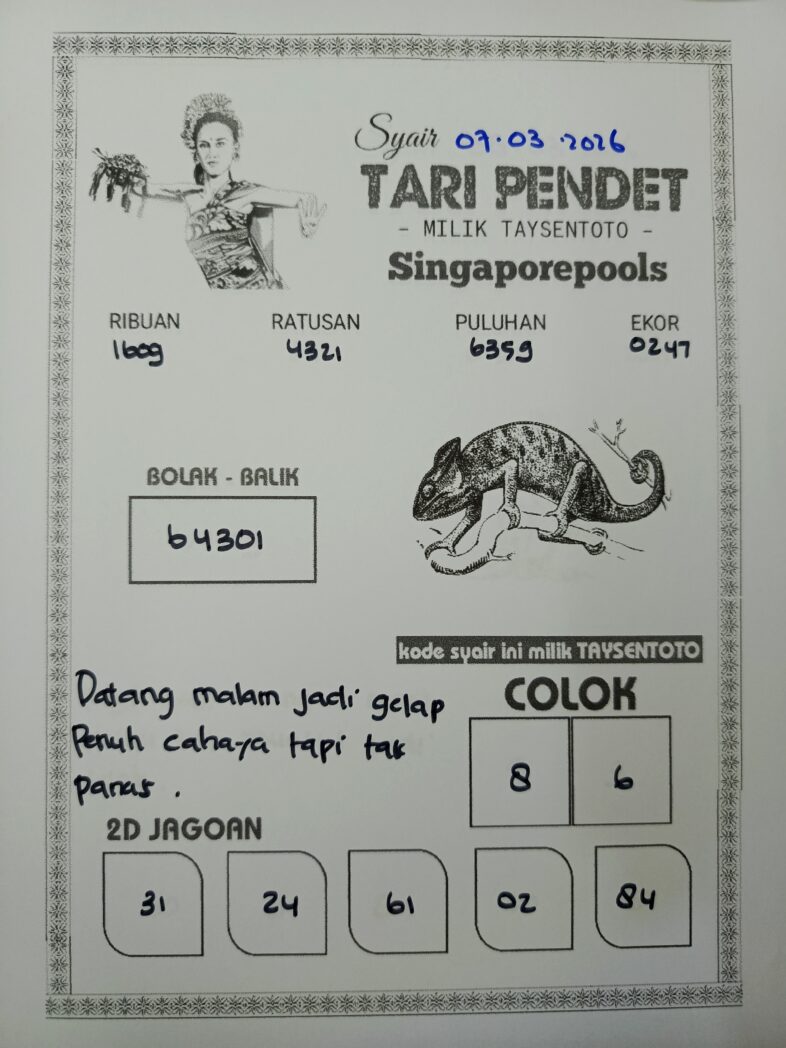 Syair 07.03.2026
TARI PENDET
- MILIK TAYSENTOTO -
Singaporepools
RIBUAN RATUSAN PULUHAN EKOR
1609 4321 6359 0247
BOLAK - BALIK
64301
kode syair ini milik TAYSENTOTO
Datang malam jadi gelap
Penuh cahaya tapi tak
panas .
COLOK
8 6
2D JAGOAN
31 24 61 02 84